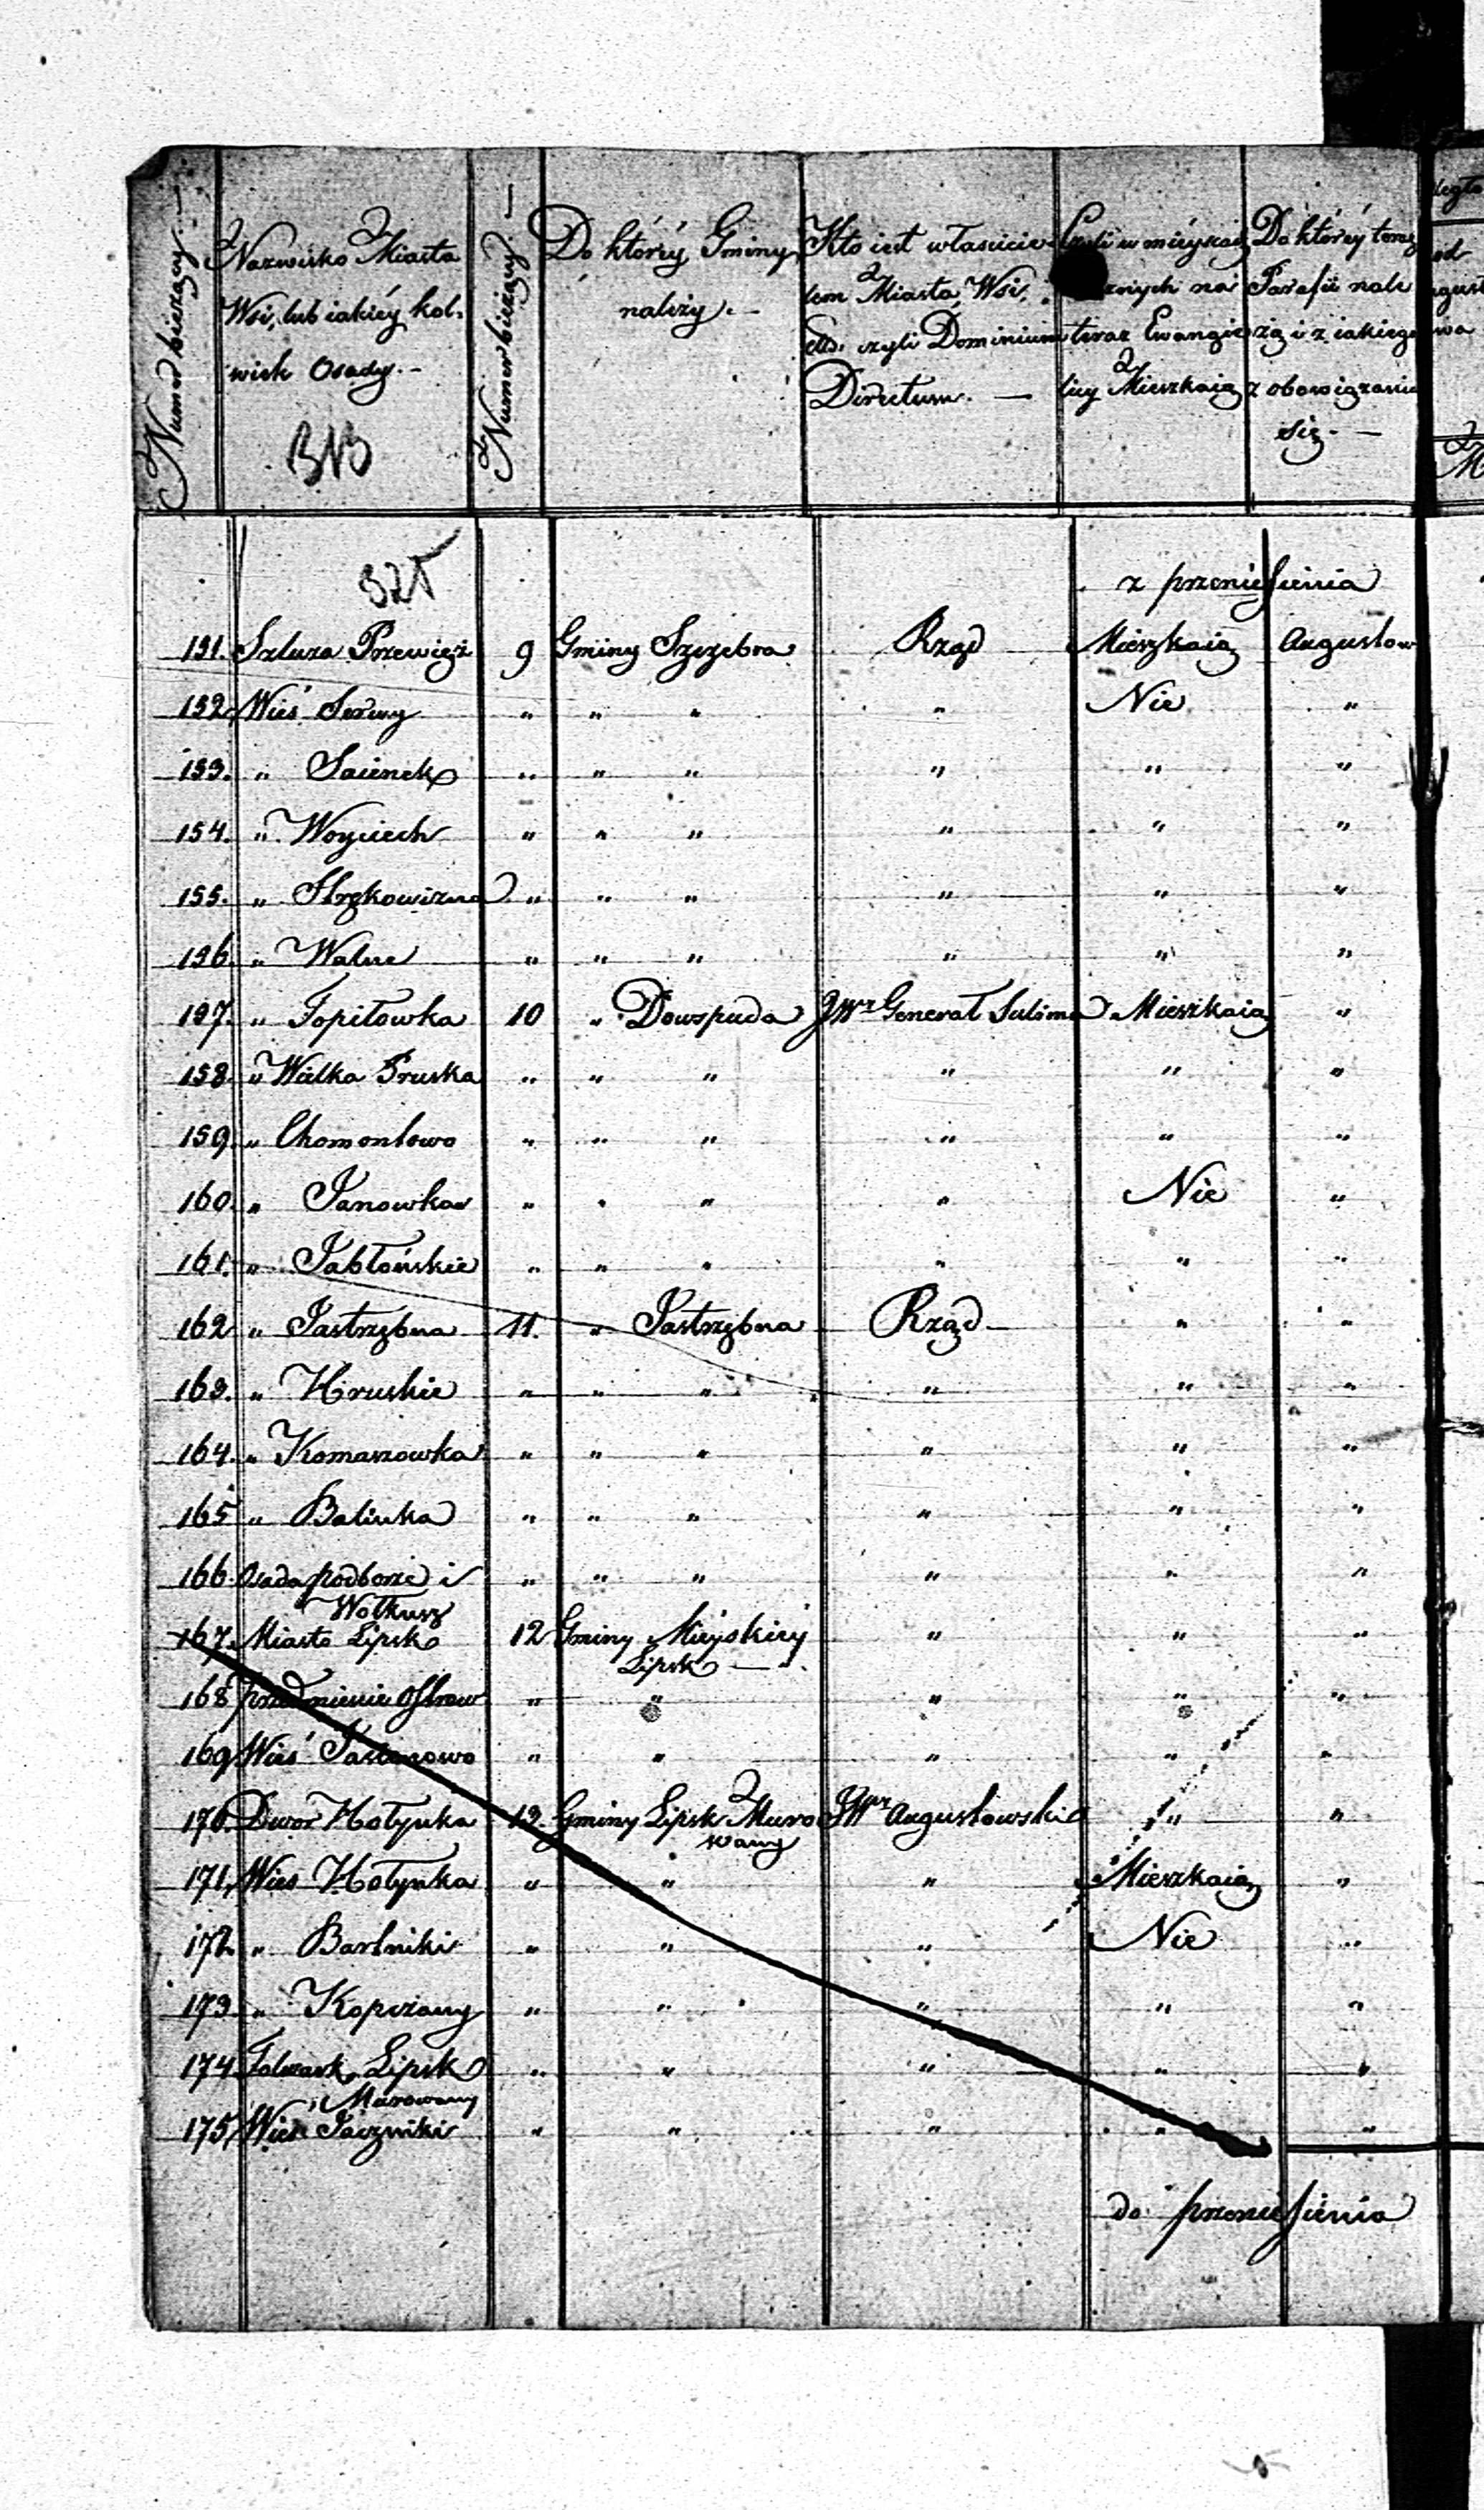 Numer bieżący.—
Nazwisko Miasta
Wsi, lub iakiéy kol-
wiek Osady.—
Numer bieżący —
Do któréy Gminy
należy.—
Kto iest właścicie-
lem Miasta, Wsi,
czyli Dominium
Directum. —
Czyli w mieysca
znych na
teraz Ewangie
licy Mieszkaią
Do któréy teraz
Parafii nale
żą i z iakiego
z obowiązania
się.—
z przeniesienia
151. Szluza Przewięź 9 Gminy Szczebra Rząd Mieszkaią Augustow
152. Wieś Serwy " " " " Nie "
153. " Saienek " " " " " "
154. " Woyciech " " " " " "
155. " Strękowizna " " " " " "
156. " Walne " " " " " "
157. " Topiłowka 10 " Dowspuda JWr Generał Sulima Mieszkaią "
158. " Wólka Pruska " " " " " "
159. " Chomontowo " " " " " "
160. " Janowka " " " " Nie "
161. " Jabłońskie " " " " " "
162 " Jastrzębna 11. " Jastrzębna Rząd " "
163. " Hruskie " " " " " "
164. " Komaszowka " " " " " "
165 " Balinka " " " " " "
166. Osada podborze i " " " " " "
Wołkusz
167. Miasto Lipsk 12 Gminy Mieyskiey " " "
Lipsk —
168 Ostrow " " " " "
169 Wieś " " " " "
170. Dwor Hołynka 13. Gminy Lipsk Muro JWr Augustowski " "
wany
171. Wieś Hołynka " " " Mieszkaią "
172. " Bartniki " " " Nie "
173. " Kopczany " " " " "
174 Folwark Lipsk " " " " "
Murowany
175 Wieś Jaczniki " " " " "
do przeniesienia